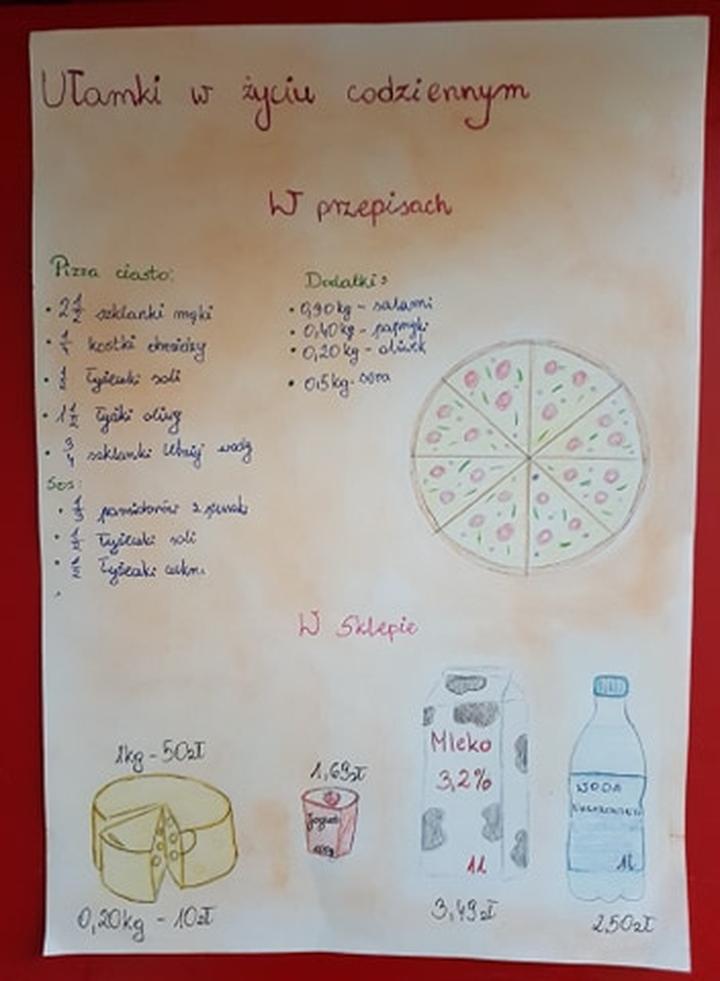 Ułamki w życiu codziennym
W przepisach
Pizza ciasto:
• 2 1/2 szklanki mąki
• 1/4 kostki drożdży
• 1/2 łyżeczki soli
• 1 1/2 łyżki oliwy
• 3/4 szklanki letniej wody
Sos:
• 1/3 pomidorów z puszki
• 1/2 łyżeczki soli
• 1/2 łyżeczki cukru
Dodatki:
• 0,90 kg - salami
• 0,40 kg - papryki
• 0,20 kg - oliwek
• 0,5 kg - sera
W Sklepie
1kg - 50zł
0,20kg - 10zł
1,69zł
Jogurt
Mleko
3,2%
1L
3,49zł
WODA
1L
2,50zł